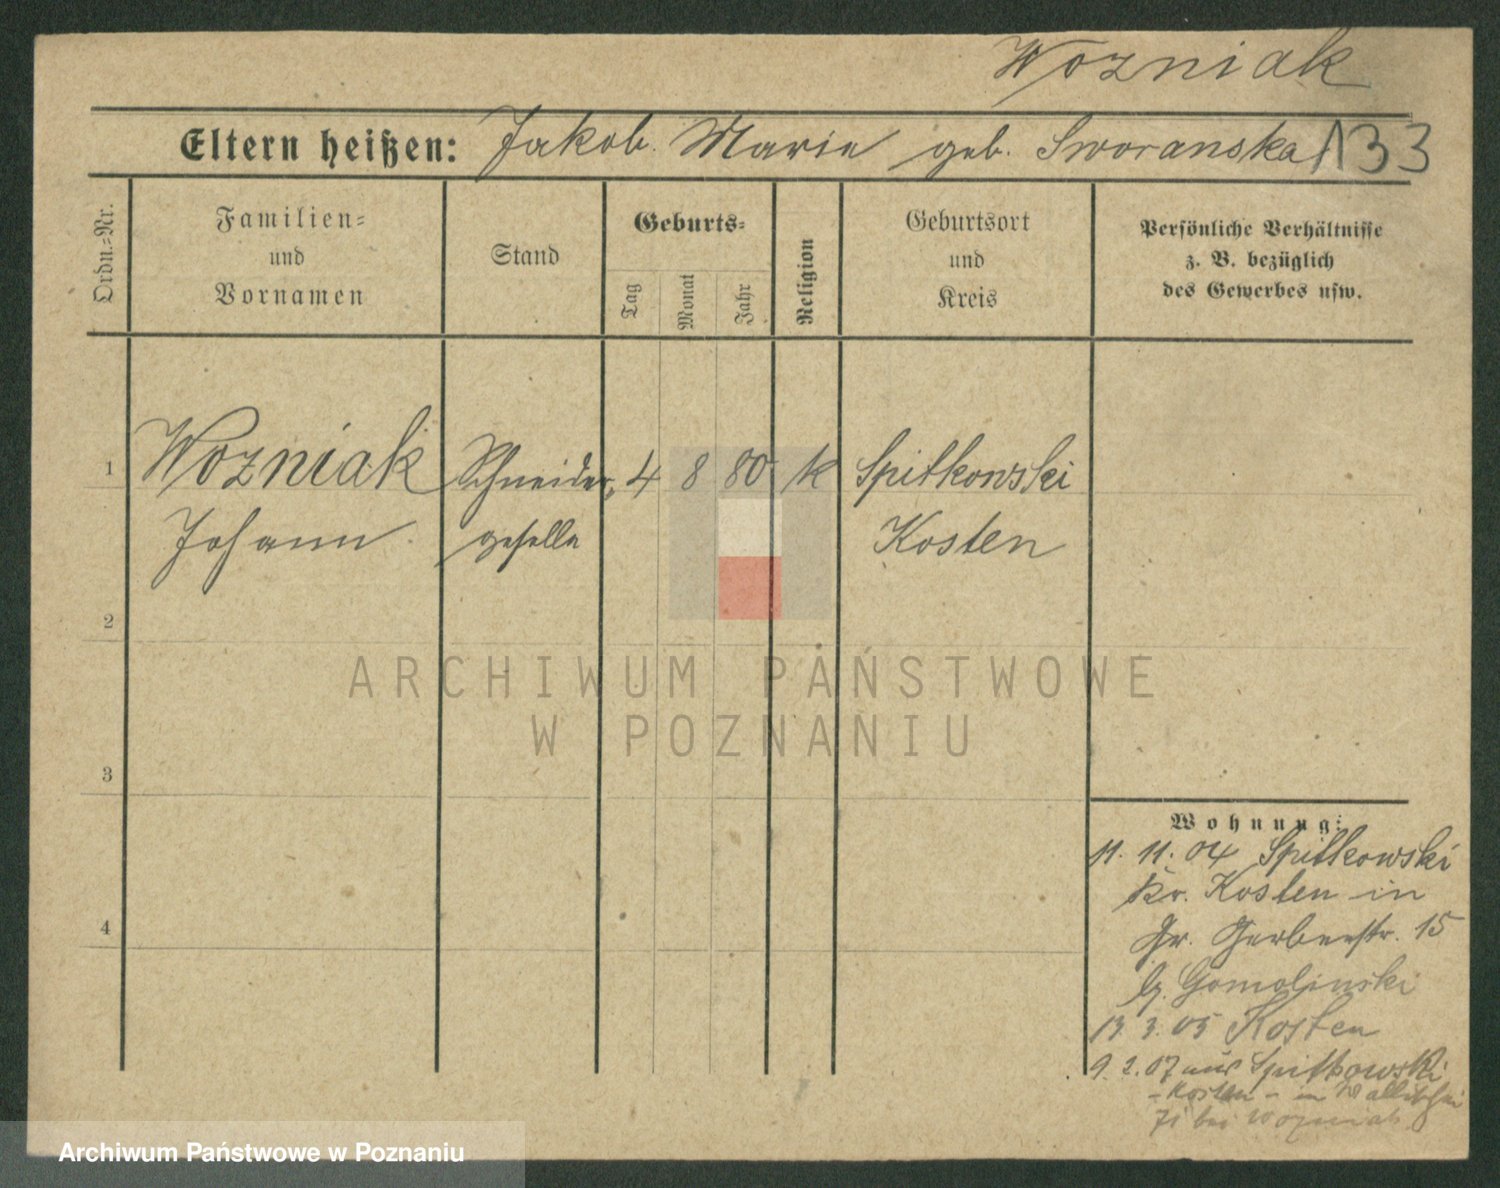 Wozniak
Eltern heißen: Jakob. Marie geb. Sworanska 133
Ordn.=Nr.
Familien=
und
Vornamen
Stand
Geburts=
Tag
Monat
Jahr
Religion
Geburtsort
und
Kreis
Persönliche Verhältnisse
z. B. bezüglich
des Gewerbes usw.
1 Wozniak Schneider, 4 8 80 k Spitkowski
Johann. geselle Kosten
2
3
4
Wohnung:
11. 11. 04 Spitkowski
Kr. Kosten in
Gr. Gerberstr. 15
b. Gomolinski
13 3. 05 Kosten
9. 2. 07 aus Spitkowski
- Kosten - in
bei Wozniak
ARCHIWUM PAŃSTWOWE
W POZNANIU
Archiwum Państwowe w Poznaniu